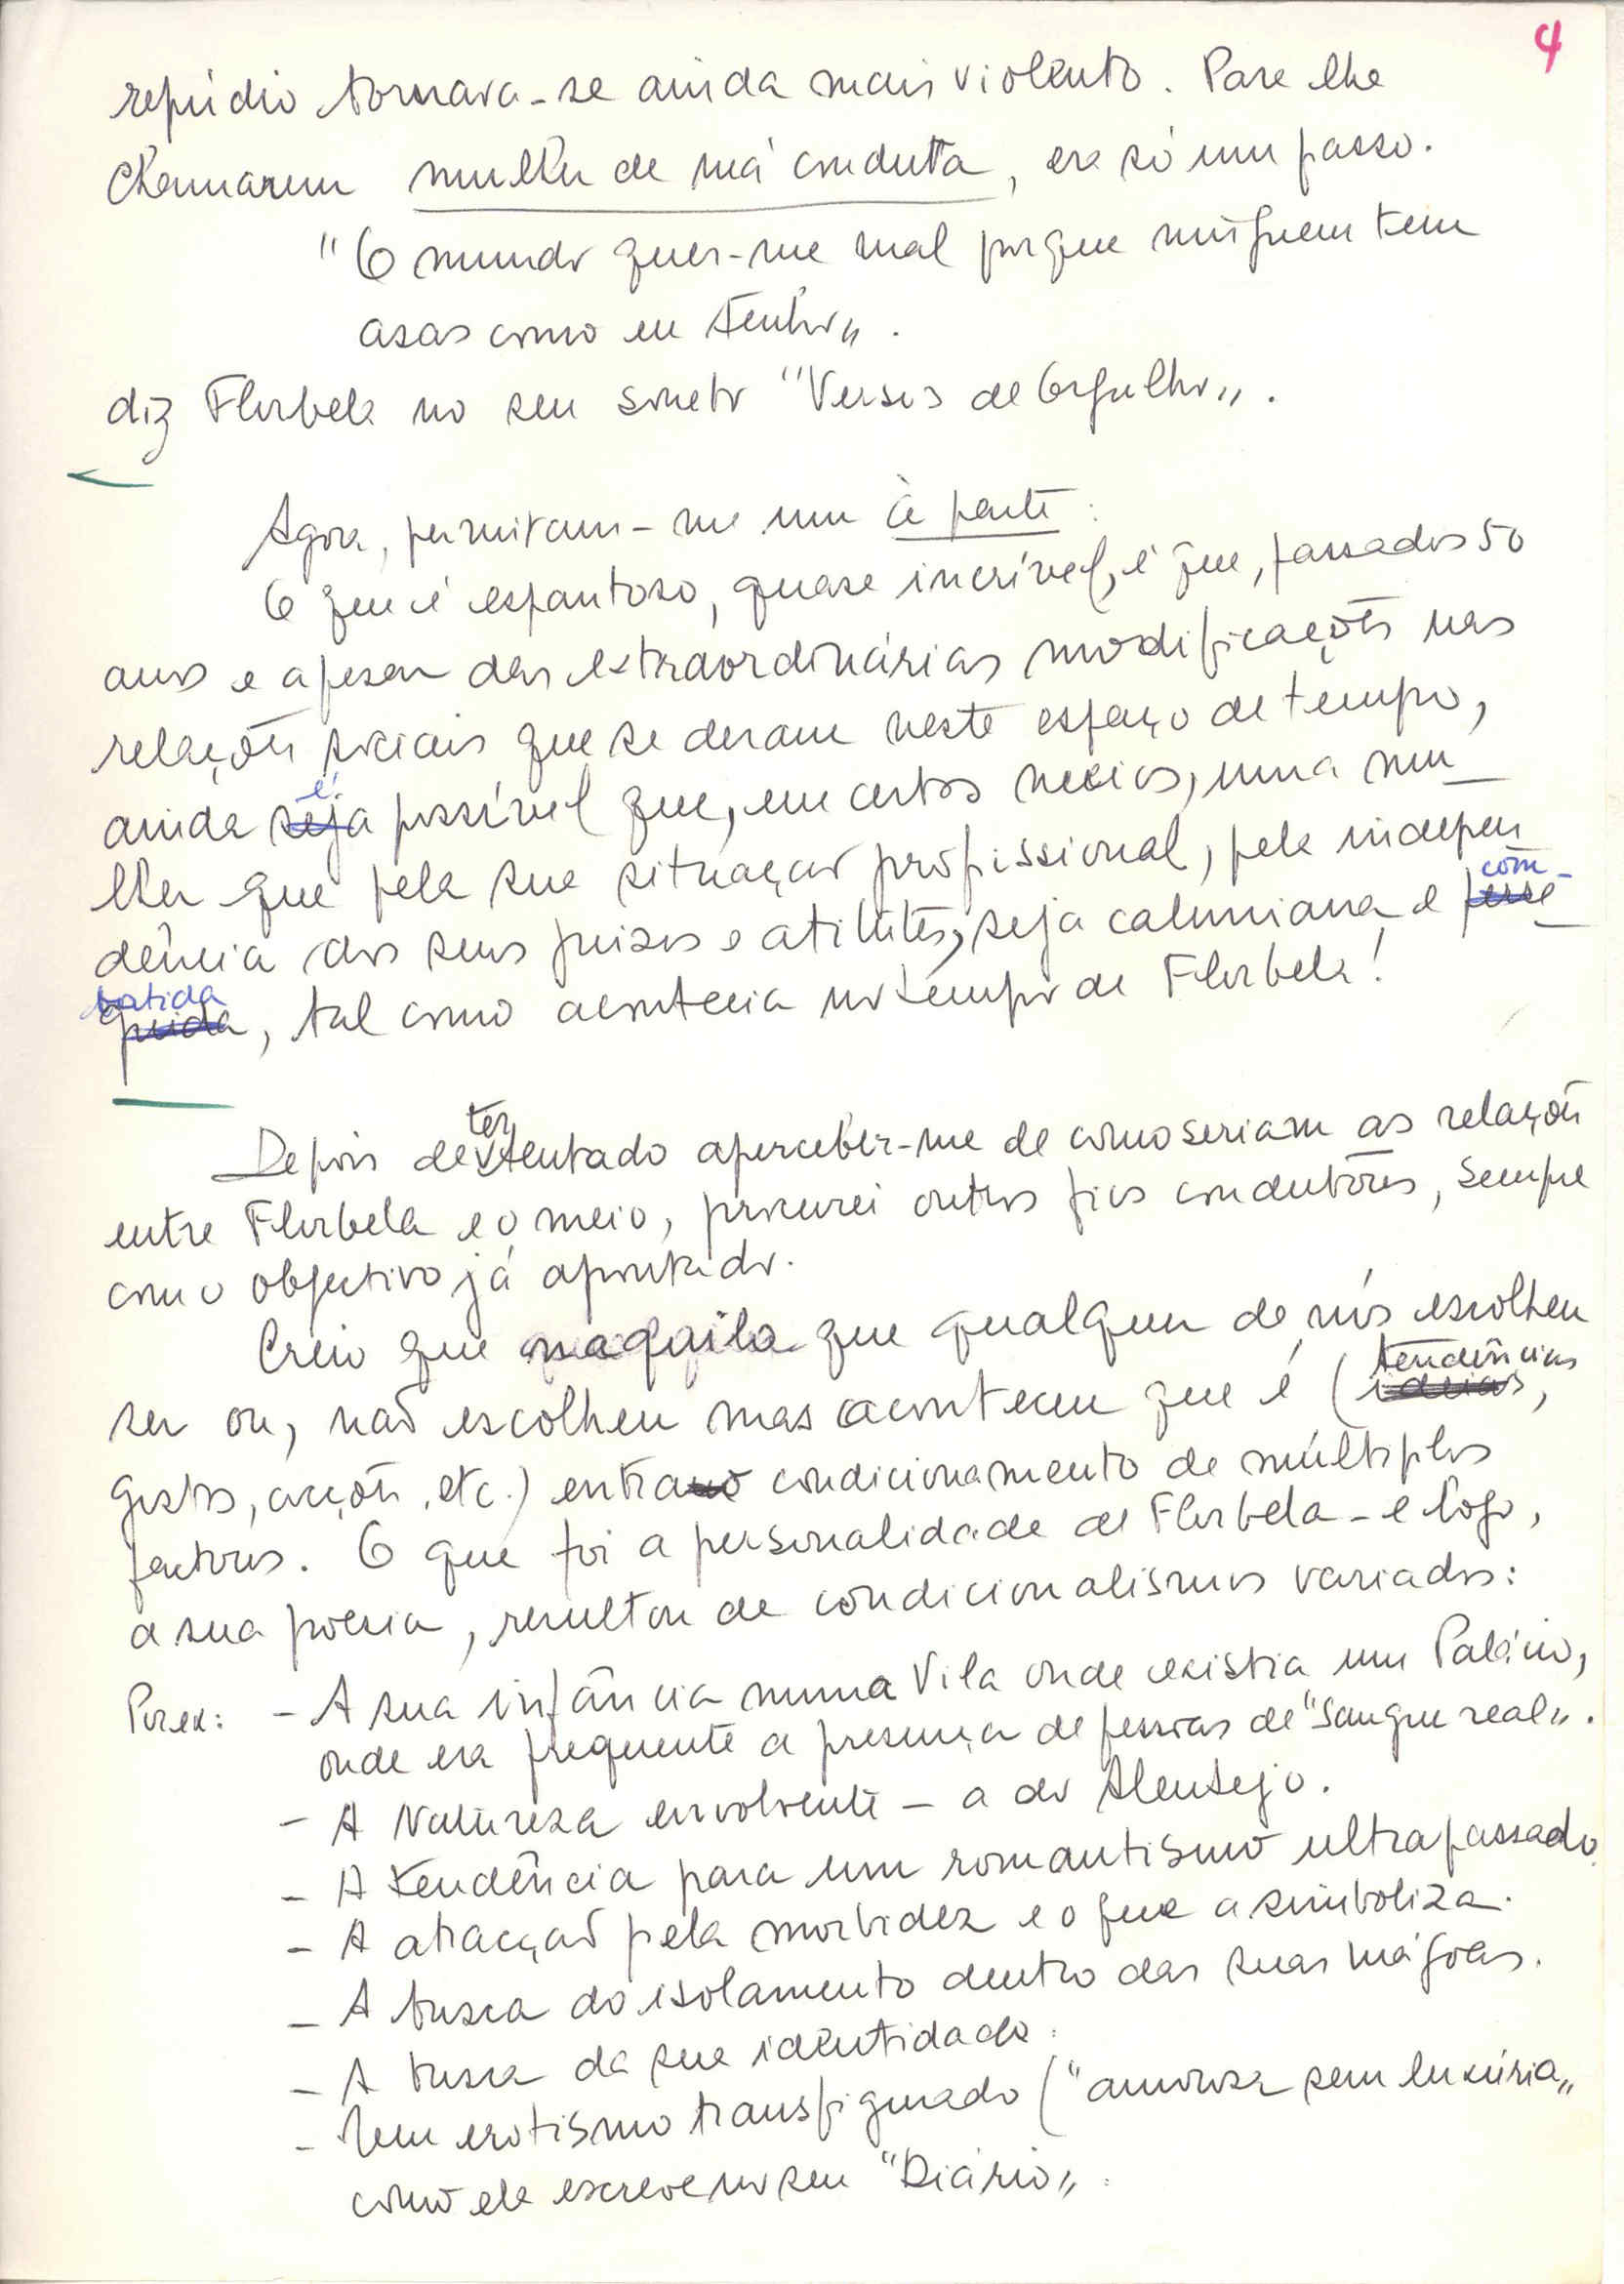 4
repúdio tornava-se ainda mais violento. Para lhe
chamarem mulher de má conduta, era só um passo.
"O mundo quer-me mal porque ninguém tem
asas como eu tenho„.
diz Florbela no seu soneto "Versos de Orgulho„.
Agora, permitam-me um à parte:
O que é espantoso, quase incrível, é que, passados 50
anos e apesar das extraordinárias modificações nas
relações sociais que se deram neste espaço de tempo,
é
ainda seja possível que, em certos meios, uma mu_
lher que pela sua situação profissional, pela indepen
com-
dência dos seus juizos e atitutes, seja caluniana e perse_
batida
guida, tal como acontecia no tempo de Florbela!
ter
Depois de tentado aperceber-me de como seriam as relações
entre Florbela e o meio, procurei outros fios condutores, sempre
com o objectivo já apontado.
Creio que naquilo que qualquer de nós escolheu
tendências
ser ou, não escolheu mas aconteceu que é (ideias,
gestos, acções, etc.) entra o condicionamento de múltiplos
factores. O que foi a personalidade de Florbela - e logo,
a sua poesia, resultou de condicionalismos variados:
Por ex: - A sua infância numa Vila onde existia um Palácio,
onde era frequente a presença de pessoas de "Sangue real„.
- A Natureza envolvente - a do Alentejo.
- A tendência para um romantismo ultrapassado.
- A atracção pela morbidez e o que a simboliza.
- A busca do isolamento dentro das suas mágoas.
- A busca da sua identidade.
- Um erotismo transfigurado ("amorosa sem luxúria„
como ela escreve no seu "Diário„.